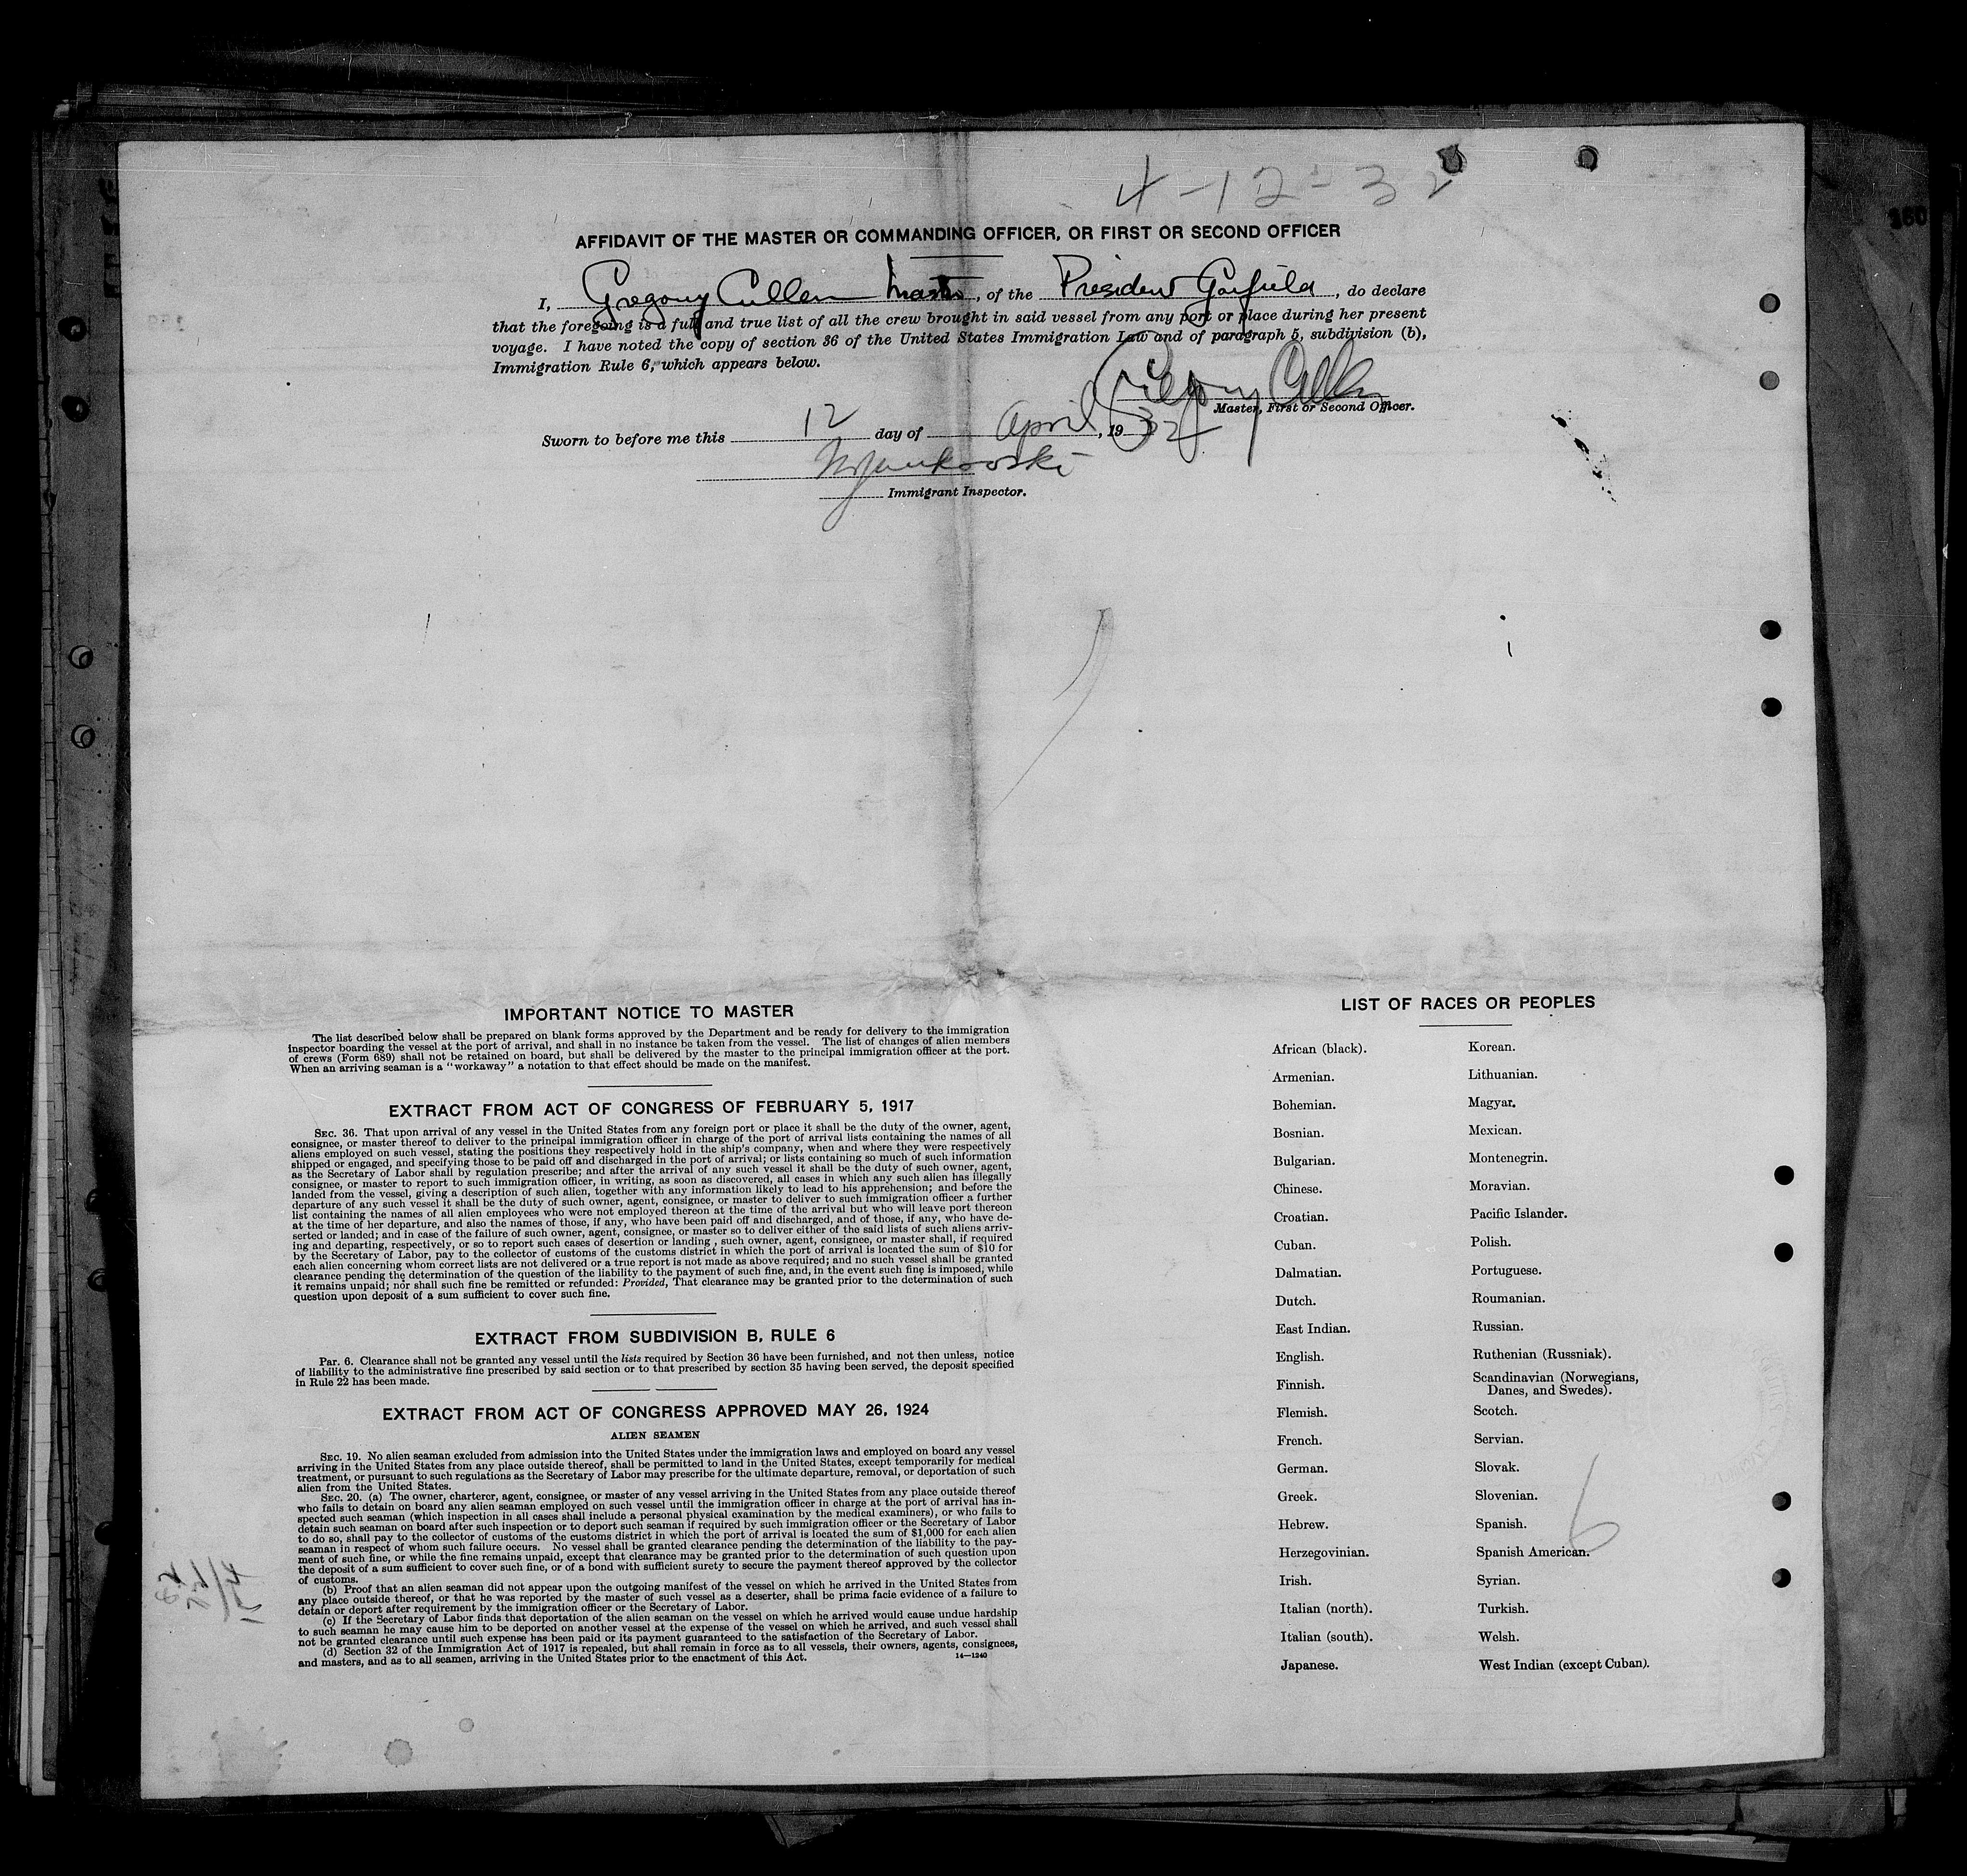 4-12-32
160
AFFIDAVIT OF THE MASTER OR COMMANDING OFFICER, OR FIRST OR SECOND OFFICER
I, Gregory Cullen Master, of the President Garfield, do declare
that the foregoing is a full and true list of all the crew brought in said vessel from any port or place during her present
voyage. I have noted the copy of section 36 of the United States Immigration Law and of paragraph 5, subdivision (b),
Immigration Rule 6, which appears below.
Gregory Cullen
Master, First or Second Officer.
Sworn to before me this 12 day of April, 1932
Immigrant Inspector.
IMPORTANT NOTICE TO MASTER
The list described below shall be prepared on blank forms approved by the Department and be ready for delivery to the immigration
inspector boarding the vessel at the port of arrival, and shall in no instance be taken from the vessel. The list of changes of alien members
of crews (Form 689) shall not be retained on board, but shall be delivered by the master to the principal immigration officer at the port.
When an arriving seaman is a "workaway" a notation to that effect should be made on the manifest.
EXTRACT FROM ACT OF CONGRESS OF FEBRUARY 5, 1917
SEC. 36. That upon arrival of any vessel in the United States from any foreign port or place it shall be the duty of the owner, agent,
consignee, or master thereof to deliver to the principal immigration officer in charge of the port of arrival lists containing the names of all
aliens employed on such vessel, stating the positions they respectively hold in the ship's company, when and where they were respectively
shipped or engaged, and specifying those to be paid off and discharged in the port of arrival; or lists containing so much of such information
as the Secretary of Labor shall by regulation prescribe; and after the arrival of any such vessel it shall be the duty of such owner, agent,
consignee, or master to report to such immigration officer, in writing, as soon as discovered, all cases in which any such alien has illegally
landed from the vessel, giving a description of such alien, together with any information likely to lead to his apprehension; and before the
departure of any such vessel it shall be the duty of such owner, agent, consignee, or master to deliver to such immigration officer a further
list containing the names of all alien employees who were not employed thereon at the time of the arrival but who will leave port thereon
at the time of her departure, and also the names of those, if any, who have been paid off and discharged, and of those, if any, who have de-
serted or landed; and in case of the failure of such owner, agent, consignee, or master so to deliver either of the said lists of such aliens arriv-
ing and departing, respectively, or so to report such cases of desertion or landing , such owner, agent, consignee, or master shall, if required
by the Secretary of Labor, pay to the collector of customs of the customs district in which the port of arrival is located the sum of $10 for
each alien concerning whom correct lists are not delivered or a true report is not made as above required; and no such vessel shall be granted
clearance pending the determination of the question of the liability to the payment of such fine, and, in the event such fine is imposed, while
it remains unpaid; nor shall such fine be remitted or refunded: Provided, That clearance may be granted prior to the determination of such
question upon deposit of a sum sufficient to cover such fine.
EXTRACT FROM SUBDIVISION B, RULE 6
Par. 6. Clearance shall not be granted any vessel until the lists required by Section 36 have been furnished, and not then unless, notice
of liability to the administrative fine prescribed by said section or to that prescribed by section 35 having been served, the deposit specified
in Rule 22 has been made.
EXTRACT FROM ACT OF CONGRESS APPROVED MAY 26, 1924
ALIEN SEAMEN
SEC. 19. No alien seaman excluded from admission into the United States under the immigration laws and employed on board any vessel
arriving in the United States from any place outside thereof, shall be permitted to land in the United States, except temporarily for medical
treatment, or pursuant to such regulations as the Secretary of Labor may prescribe for the ultimate departure, removal, or deportation of such
alien from the United States.
SEC. 20. (a) The owner, charterer, agent, consignee, or master of any vessel arriving in the United States from any place outside thereof
who fails to detain on board any alien seaman employed on such vessel until the immigration officer in charge at the port of arrival has in-
spected such seaman (which inspection in all cases shall include a personal physical examination by the medical examiners), or who fails to
detain such seaman on board after such inspection or to deport such seaman if required by such immigration officer or the Secretary of Labor
to do so, shall pay to the collector of customs of the customs district in which the port of arrival is located the sum of $1,000 for each alien
seaman in respect of whom such failure occurs. No vessel shall be granted clearance pending the determination of the liability to the pay-
ment of such fine, or while the fine remains unpaid, except that clearance may be granted prior to the determination of such question upon
the deposit of a sum sufficient to cover such fine, or of a bond with sufficient surety to secure the payment thereof approved by the collector
of customs.
(b) Proof that an alien seaman did not appear upon the outgoing manifest of the vessel on which he arrived in the United States from
any place outside thereof, or that he was reported by the master of such vessel as a deserter, shall be prima facie evidence of a failure to
detain or deport after requirement by the immigration officer or the Secretary of Labor.
(c) If the Secretary of Labor finds that deportation of the alien seaman on the vessel on which he arrived would cause undue hardship
to such seaman he may cause him to be deported on another vessel at the expense of the vessel on which he arrived, and such vessel shall
not be granted clearance until such expense has been paid or its payment guaranteed to the satisfaction of the Secretary of Labor.
(d) Section 32 of the Immigration Act of 1917 is repealed, but shall remain in force as to all vessels, their owners, agents, consignees,
and masters, and as to all seamen, arriving in the United States prior to the enactment of this Act.
14—1240
LIST OF RACES OR PEOPLES
African (black).
Armenian.
Bohemian.
Bosnian.
Bulgarian.
Chinese.
Croatian.
Cuban.
Dalmatian.
Dutch.
East Indian.
English.
Finnish.
Flemish.
French.
German.
Greek.
Hebrew.
Herzegovinian.
Irish.
Italian (north).
Italian (south).
Japanese.
Korean.
Lithuanian.
Magyar.
Mexican.
Montenegrin.
Moravian.
Pacific Islander.
Polish.
Portuguese.
Roumanian.
Russian.
Ruthenian (Russniak).
Scandinavian (Norwegians,
Danes, and Swedes).
Scotch.
Servian.
Slovak.
Slovenian.
Spanish.
Spanish American.
Syrian.
Turkish.
Welsh.
West Indian (except Cuban).
6